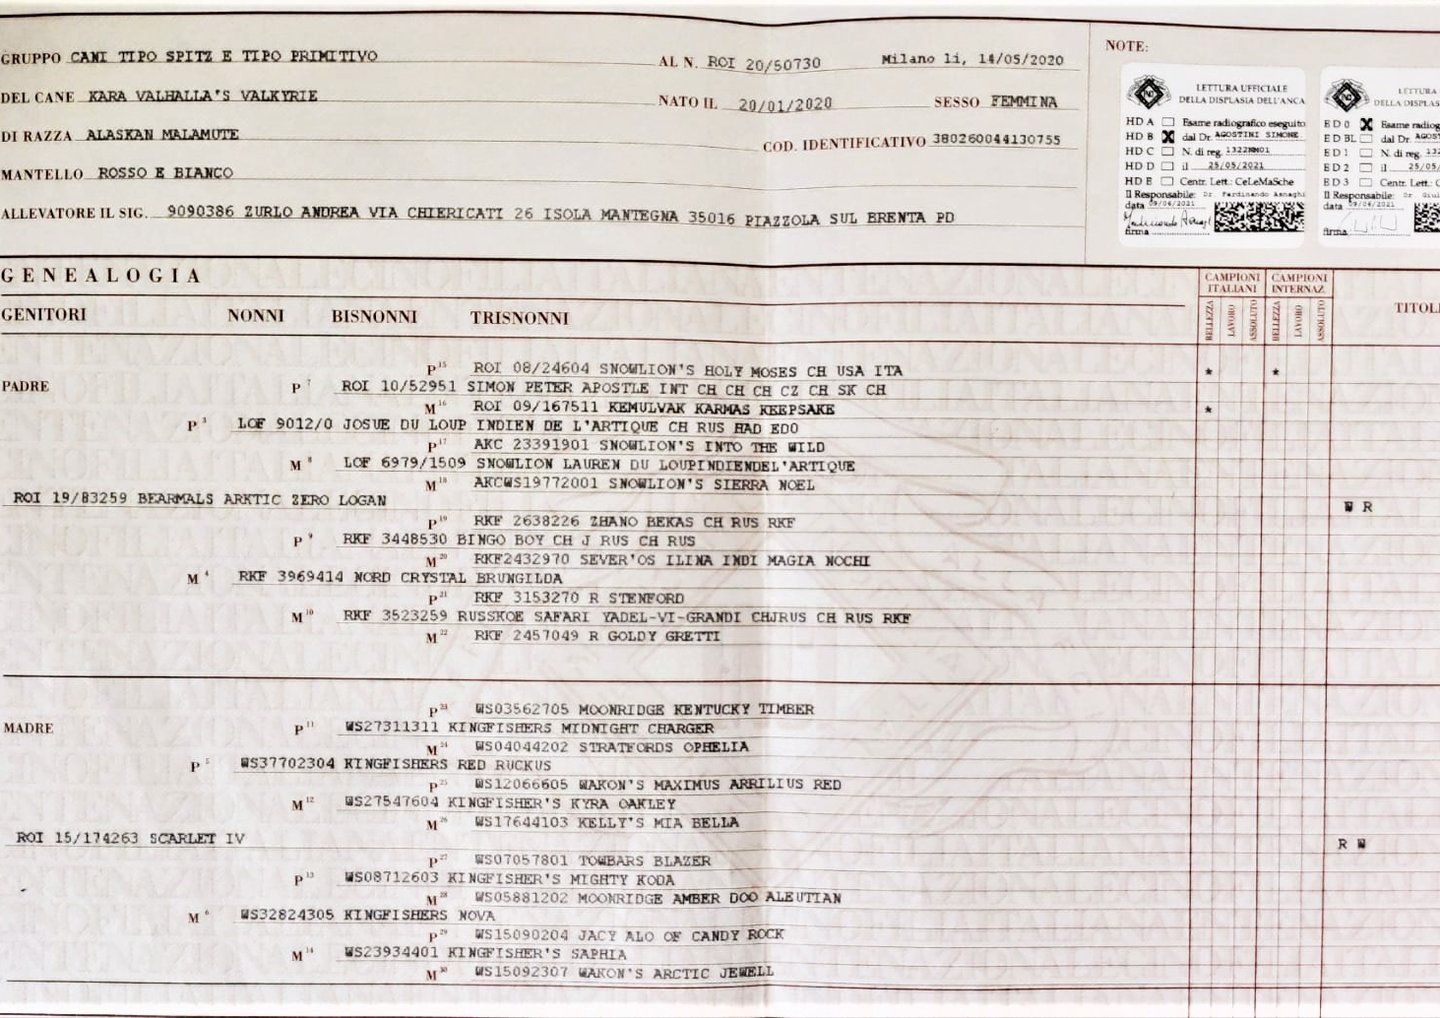 GRUPPO CANI TIPO SPITZ E TIPO PRIMITIVO AL N. ROI 20/50730 Milano li, 14/05/2020
DEL CANE KARA VALHALLA'S VALKYRIE NATO IL 20/01/2020 SESSO FEMMINA
DI RAZZA ALASKAN MALAMUTE COD. IDENTIFICATIVO 380260044130755
MANTELLO ROSSO E BIANCO
ALLEVATORE IL SIG. 9090386 ZURLO ANDREA VIA CHIERICATI 26 ISOLA MANTEGNA 35016 PIAZZOLA SUL BRENTA PD
NOTE:
LETTURA UFFICIALE
DELLA DISPLASIA DELL'ANCA
HD A Esame radiografico eseguito
HD B dal Dr. AGOSTINI SIMONE
HD C N. di reg.
HD D il 25/05/2021
HD E Centr. Lett.: CeLeMaSche
Il Responsabile: Dr Ferdinando Asnaghi
data 09/06/2021
firma
LETTURA
DELLA DISPLAS
ED 0 Esame radiog
ED BL dal Dr. AGOST
ED 1 N. di reg.
ED 2 il 25/05/
ED 3 Centr. Lett.: C
Il Responsabile: Dr Giul
data 09/06/2021
firma
GENEALOGIA
GENITORI NONNI BISNONNI TRISNONNI
CAMPIONI ITALIANI CAMPIONI INTERNAZ
BELLEZZA LAVORO ASSOLUTO BELLEZZA LAVORO ASSOLUTO
TITOLI
P 15 ROI 08/24604 SNOWLION'S HOLY MOSES CH USA ITA * *
PADRE P 7 ROI 10/52951 SIMON PETER APOSTLE INT CH CH CH CZ CH SK CH
M 16 ROI 09/167511 KEMULVAK KARMAS KEEPSAKE *
P 3 LOF 9012/0 JOSUE DU LOUP INDIEN DE L'ARTIQUE CH RUS HAD ED0
P 17 AKC 23391901 SNOWLION'S INTO THE WILD
M 8 LOF 6979/1509 SNOWLION LAUREN DU LOUPINDIENDEL'ARTIQUE
M 18 AKCWS19772001 SNOWLION'S SIERRA NOEL
ROI 19/83259 BEARMALS ARKTIC ZERO LOGAN W R
P 19 RKF 2638226 ZHANO BEKAS CH RUS RKF
P 9 RKF 3448530 BINGO BOY CH J RUS CH RUS
M 20 RKF2432970 SEVER'OS ILINA INDI MAGIA NOCHI
M 4 RKF 3969414 NORD CRYSTAL BRUNGILDA
P 21 RKF 3153270 R STENFORD
M 10 RKF 3523259 RUSSKOE SAFARI YADEL-VI-GRANDI CHJRUS CH RUS RKF
M 22 RKF 2457049 R GOLDY GRETTI
P 23 WS03562705 MOONRIDGE KENTUCKY TIMBER
MADRE P 11 WS27311311 KINGFISHERS MIDNIGHT CHARGER
M 24 WS04044202 STRATFORDS OPHELIA
P 5 WS37702304 KINGFISHERS RED RUCKUS
P 25 WS12066605 WAKON'S MAXIMUS ARRILIUS RED
M 12 WS27547604 KINGFISHER'S KYRA OAKLEY
M 26 WS17644103 KELLY'S MIA BELLA
ROI 15/174263 SCARLET IV R W
P 27 WS07057801 TOWBARS BLAZER
P 13 WS08712603 KINGFISHER'S MIGHTY KODA
M 28 WS05881202 MOONRIDGE AMBER DOO ALEUTIAN
M 6 WS32824305 KINGFISHERS NOVA
P 29 WS15090204 JACY ALO OF CANDY ROCK
M 14 WS23934401 KINGFISHER'S SAPHIA
M 30 WS15092307 WAKON'S ARCTIC JEWELL